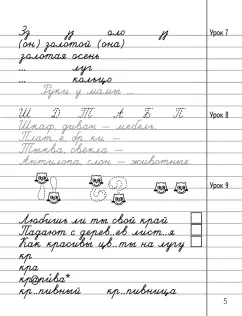 Зз зз ого зз Урок 7
(он) золотой (она)
золотая осень
... луг
... кольцо
Руки у мамы ...
Ш Д Т А Б П Урок 8
Шкаф, диван — мебель.
Плат..е, бр..ки —
Тыква, свекла —
Антилопа, слон — животные.
Урок 9
Любишь ли ты свой край
Падают с дерев..ев лист..я
Как красивы цв..ты на лугу
кр
кра
кр@пи́ва*
кр..пивный кр..пивница
5